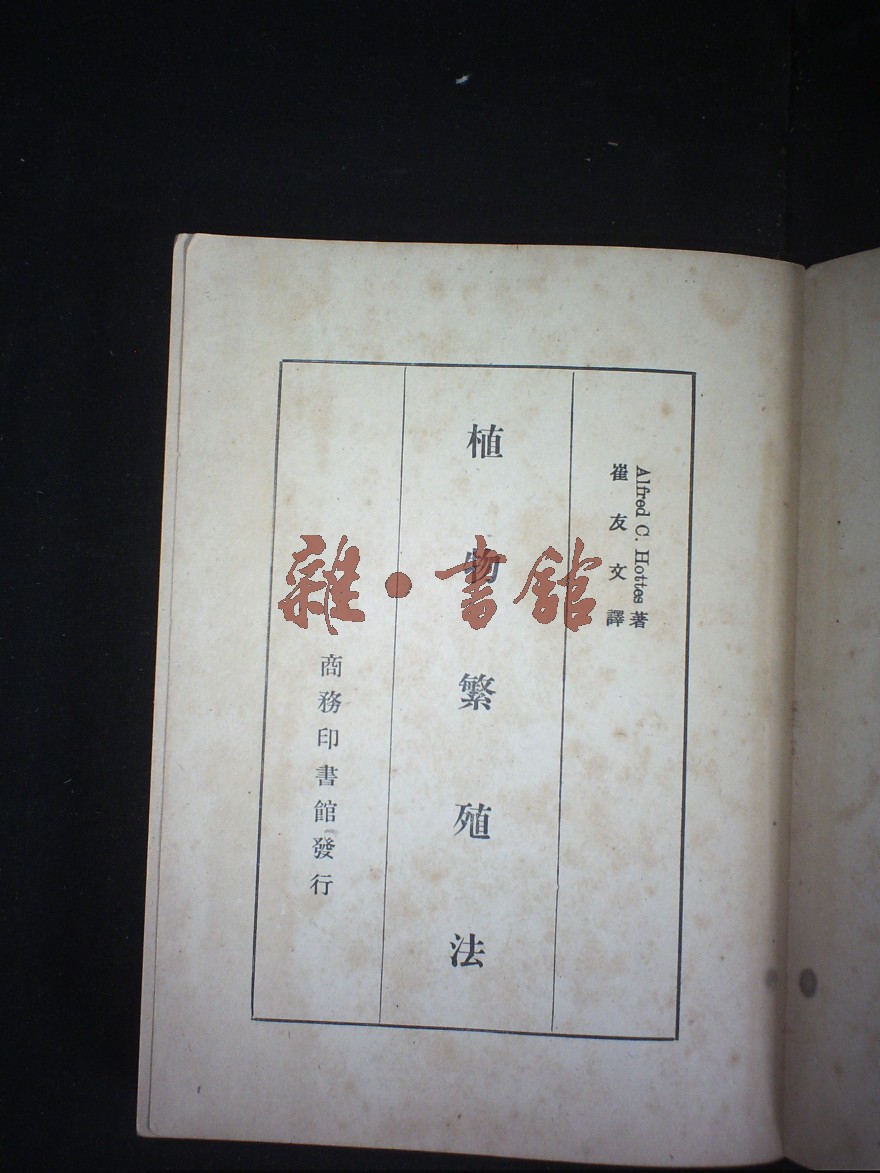 Alfred C. Hottes 著
崔友文 譯
植物繁殖法
商務印書館發行
雜·書館